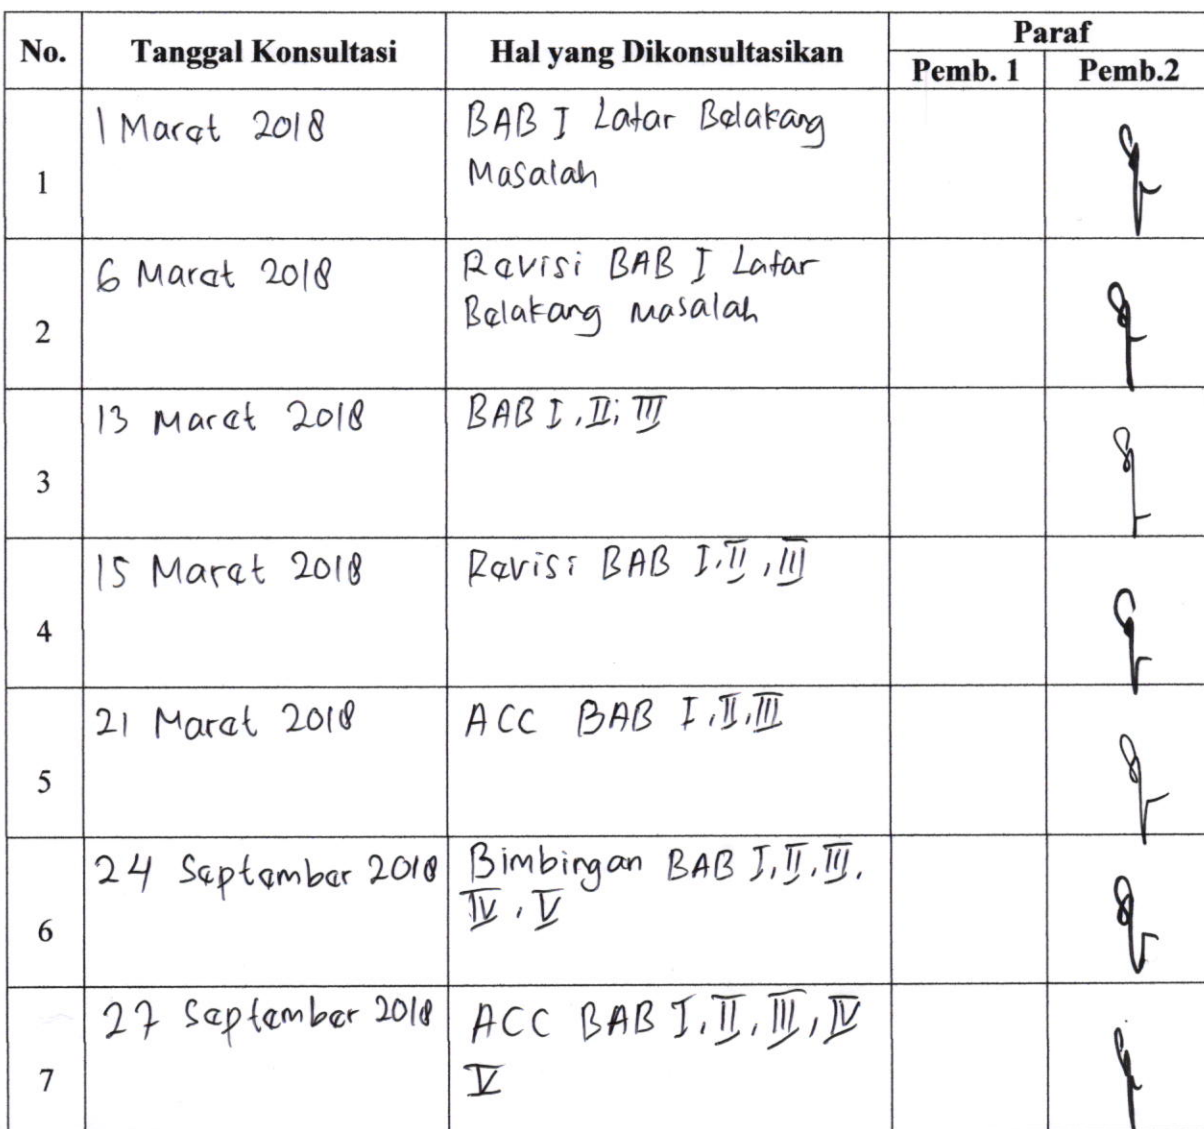 No. Tanggal Konsultasi Hal yang Dikonsultasikan Paraf
Pemb. 1 Pemb.2
1 1 Maret 2018 BAB I Latar Belakang
Masalah
2 6 Maret 2018 Revisi BAB I Latar
Belakang Masalah
3 13 Maret 2018 BAB I, II, III
4 15 Maret 2018 Revisi BAB I, II, III
5 21 Maret 2018 ACC BAB I, II, III
6 24 September 2018 Bimbingan BAB I, II, III,
IV, V
7 27 September 2018 ACC BAB I, II, III, IV
V